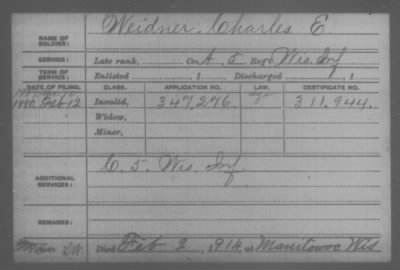 NAME OF SOLDIER: Weidner, Charles E.
SERVICE: Late rank, Co. A, 5 Reg't Wis. Inf
TERM OF SERVICE: Enlisted , 1 Discharged , 1
DATE OF FILING. CLASS. APPLICATION NO. LAW. CERTIFICATE NO.
1880, Feb 12 Invalid, 347,276. 311,944.
Widow,
Minor,
ADDITIONAL SERVICES: C. 5. Wis. Inf.
REMARKS:
Died Feb 2, 914, at Manitowoc Wis